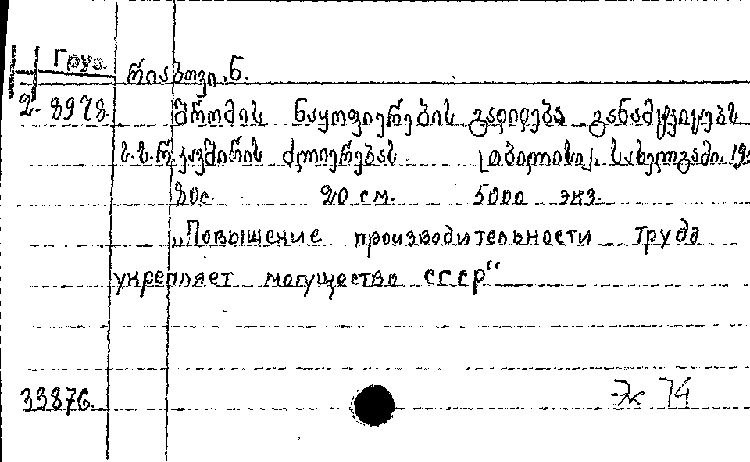 Груз.
რიაბოვი. ნ.
2-8978.
შრომის ნაყოფიერების გადიდება განამტკიცებს
ს.ს.რ. კავშირის ძლიერებას. [თბილისი]. სახელგამი. 19
20 см. 5000 экз.
„Повышение производительности труда
укрепляет могущество СССР“
33876.
Эк 74